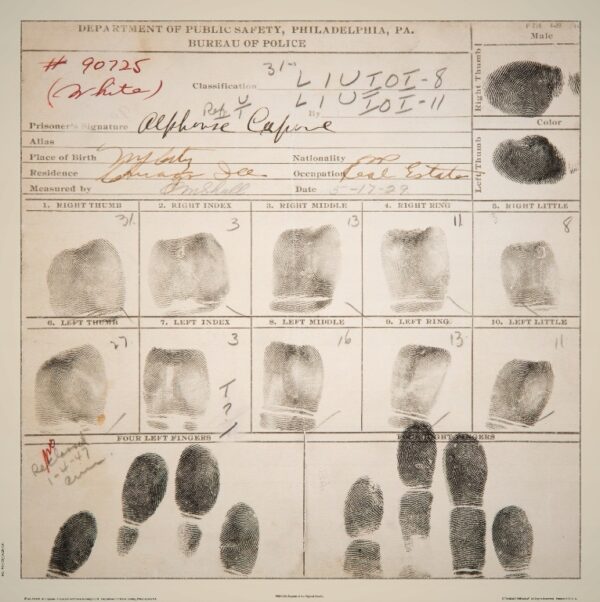 DEPARTMENT OF PUBLIC SAFETY, PHILADELPHIA, PA.
BUREAU OF POLICE
Male
# 90725
(White)
Classification
31 L 1 U IOI-8
L 1 U IOI-11
Ref.
By
Right Thumb
Prisoner's Signature Alphonse Capone
Color
Alias
Place of Birth Nationality
Residence Chicago Ill Occupation Real Estate
Measured by Date 5-17-29
Left Thumb
1. RIGHT THUMB 2. RIGHT INDEX 3. RIGHT MIDDLE 4. RIGHT RING 5. RIGHT LITTLE
31 3 13 11 8
6. LEFT THUMB 7. LEFT INDEX 8. LEFT MIDDLE 9. LEFT RING 10. LEFT LITTLE
27 3 16 13 11
T
?
FOUR LEFT FINGERS FINGERS
1-4-47